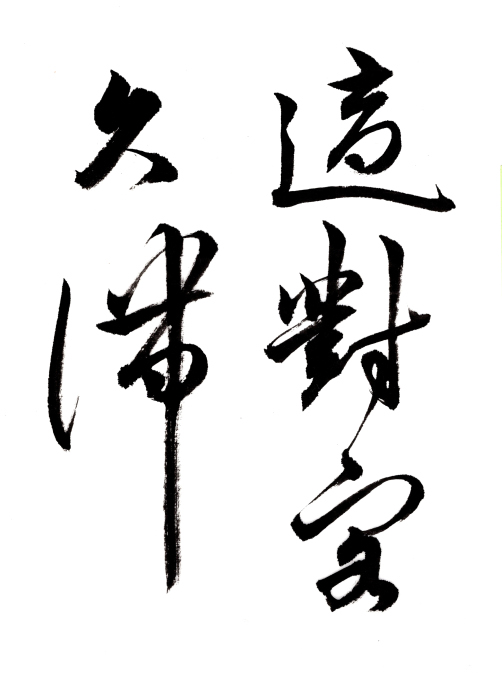 適對客
久滞